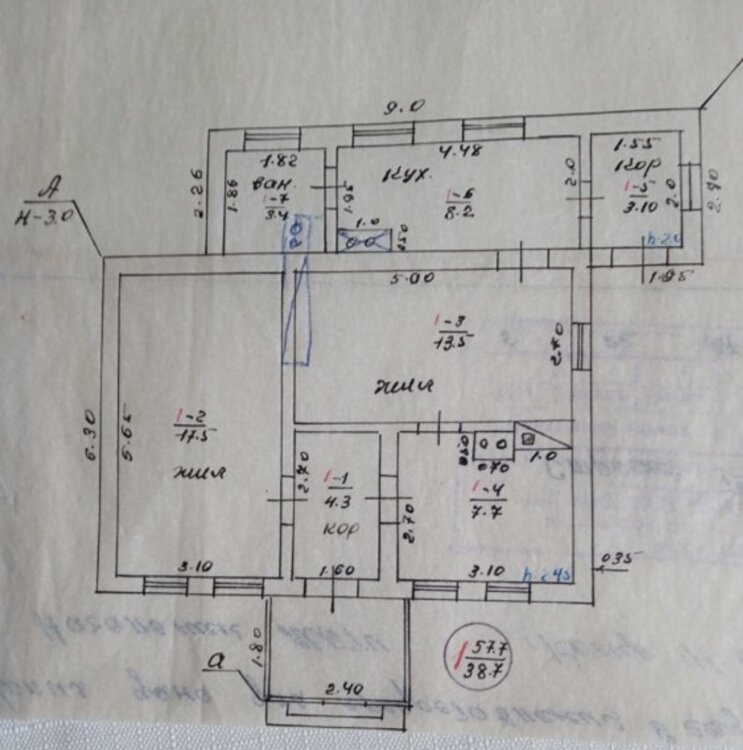 9.0
А
Н-3.0
1.82
ван.
1-7
3.4
2.26
1.86
1.85
кух.
4.48
1-6
8.2
1.0
0.50
2.0
1.55
кор
1-5
3.10
2.0
2.90
h-2.0
1.95
5.00
1-3
13.5
жил
2.70
6.30
5.65
1-2
17.5
жил
3.10
2.70
1-1
4.3
кор
1.60
0.50
0.70
1.0
1-4
7.7
2.70
3.10
h-2.45
0.35
а
1.80
2.40
1 57.7
38.7